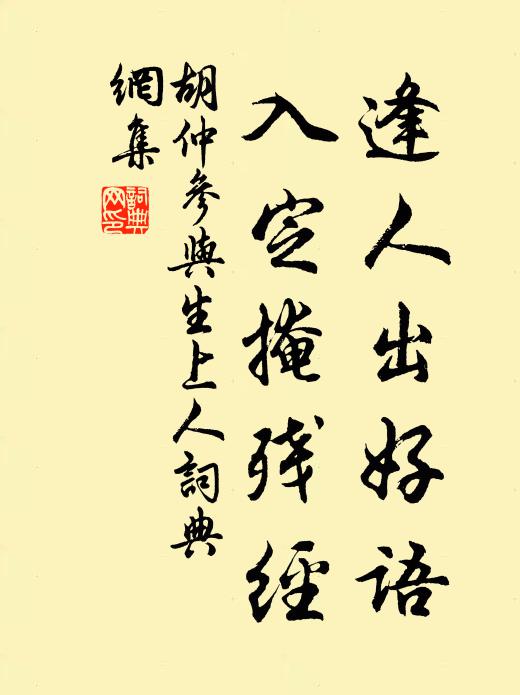 逢人出好語
入定掩殘經
胡仲參與生上人詞典
網集
詞典
網印